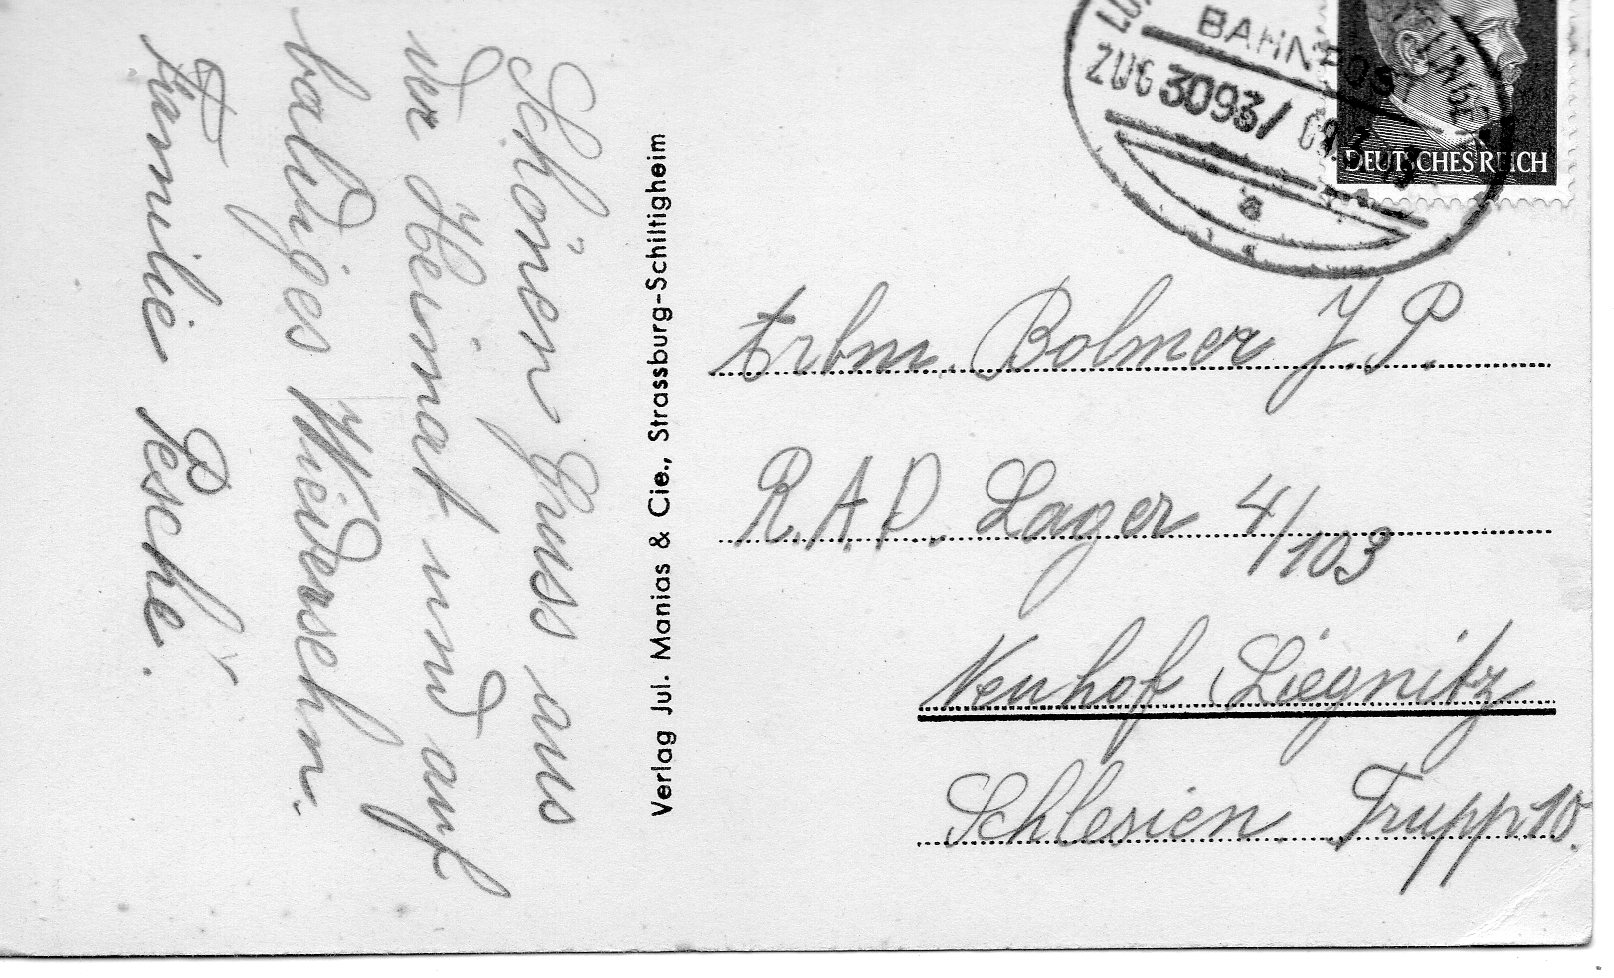 Schönen Gruss aus
der Heimat und auf
baldiges Wiedersehn.
Familie Pesché.
Verlag Jul. Manias & Cie., Strassburg-Schiltigheim
BAHNPOS
ZUG 3093/
a
DEUTSCHES REICH
Arbm. Bolmer J. P.
R.A.D. Lager 4/103
Neuhof Liegnitz
Schlesien Trupp 10.